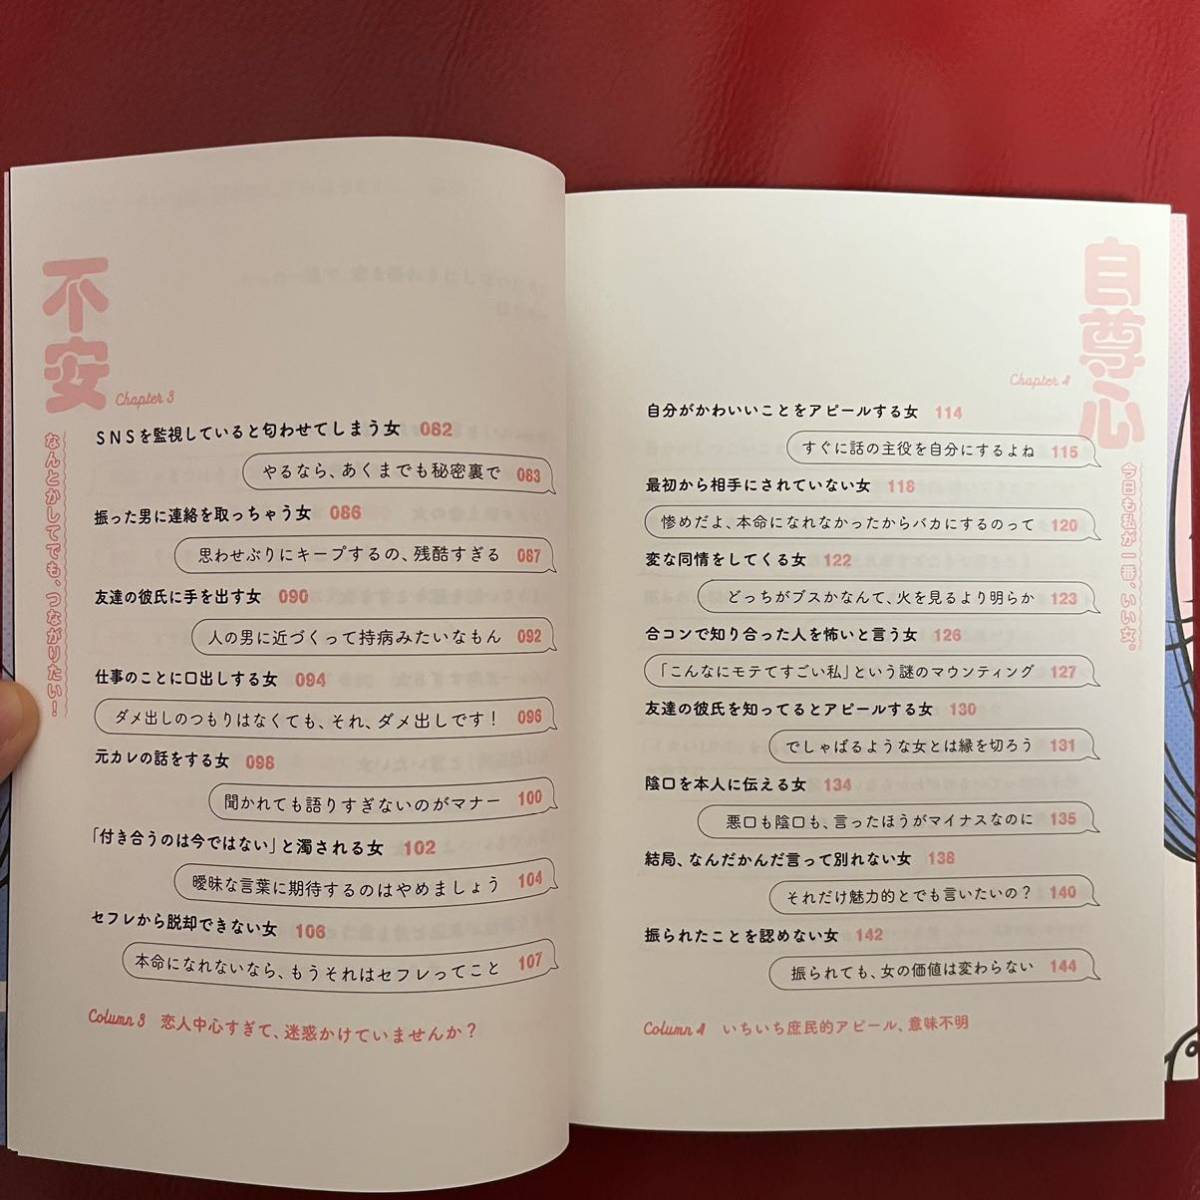 不安
Chapter 3
なんとかしてでも、つながりたい！
SNSを監視していると匂わせてしまう女 082
やるなら、あくまでも秘密裏で 083
振った男に連絡を取っちゃう女 086
思わせぶりにキープするの、残酷すぎる 087
友達の彼氏に手を出す女 090
人の男に近づくって持病みたいなもん 092
仕事のことに口出しする女 094
ダメ出しのつもりはなくても、それ、ダメ出しです！ 096
元カレの話をする女 098
聞かれても語りすぎないのがマナー 100
「付き合うのは今ではない」と濁される女 102
曖昧な言葉に期待するのはやめましょう 104
セフレから脱却できない女 106
本命になれないなら、もうそれはセフレってこと 107
Column 3 恋人中心すぎて、迷惑かけていませんか？
自尊心
Chapter 4
今日も私が一番、いい女。
自分がかわいいことをアピールする女 114
すぐに話の主役を自分にするよね 115
最初から相手にされていない女 118
惨めだよ、本命になれなかったからバカにするのって 120
変な同情をしてくる女 122
どっちがブスかなんて、火を見るより明らか 123
合コンで知り合った人を怖いと言う女 126
「こんなにモテてすごい私」という謎のマウンティング 127
友達の彼氏を知ってるとアピールする女 130
でしゃばるような女とは縁を切ろう 131
陰口を本人に伝える女 134
悪口も陰口も、言ったほうがマイナスなのに 135
結局、なんだかんだ言って別れない女 138
それだけ魅力的とでも言いたいの？ 140
振られたことを認めない女 142
振られても、女の価値は変わらない 144
Column 4 いちいち庶民的アピール、意味不明